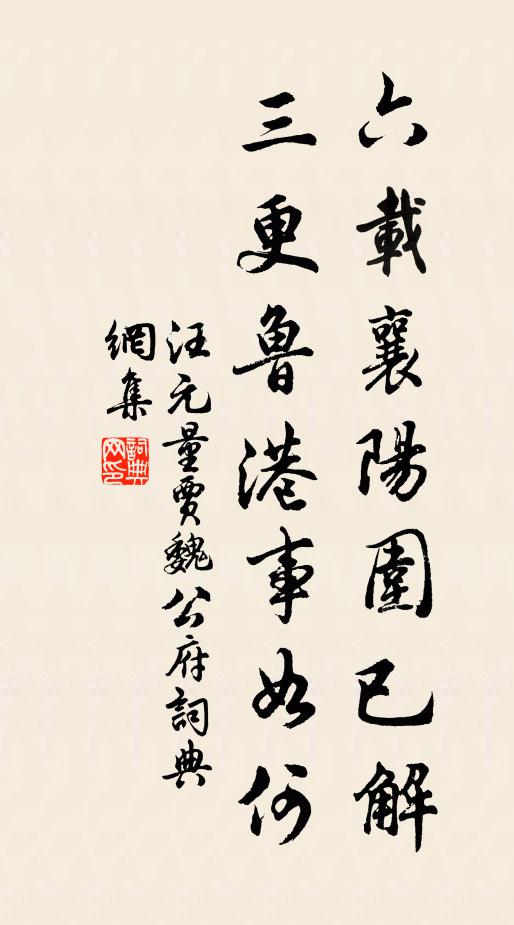 六載襄陽圍已解
三更魯港事如何
汪元量賈魏公府詞典
網集
詞典網印